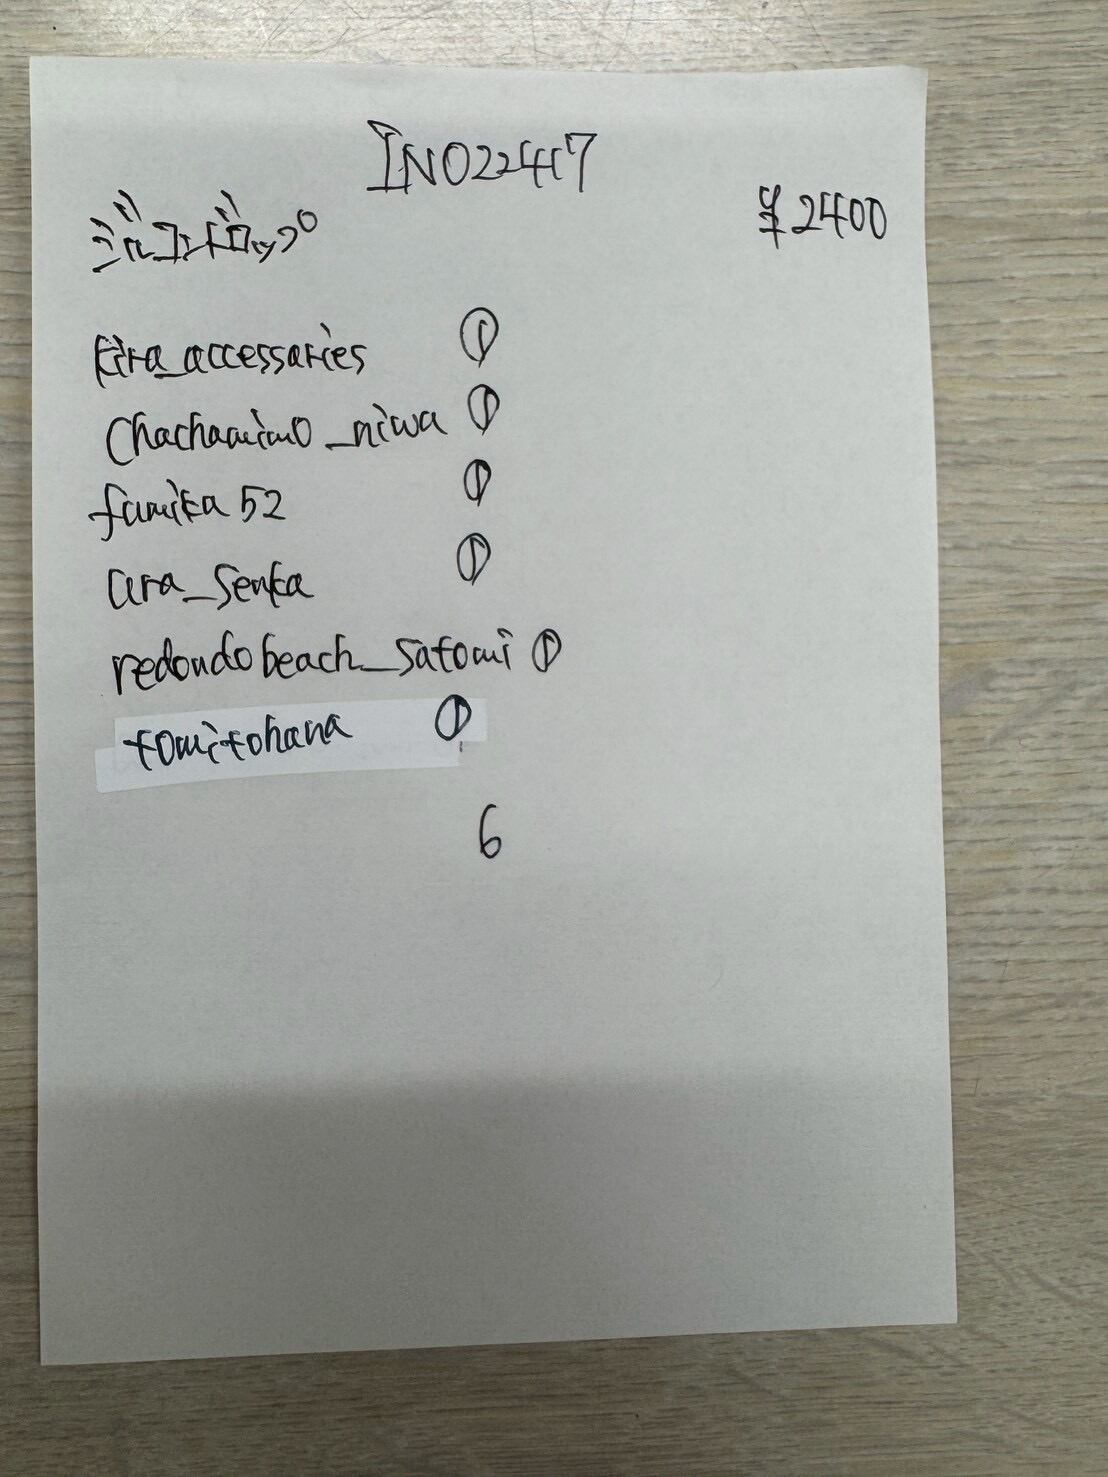 INO22447
ジルコンドロップ
¥2400
kira_accessaries ①
chachamimo_niwa ①
fumika52 ①
ura_senka ①
redondobeach_satomi ①
tomitohana ①
6